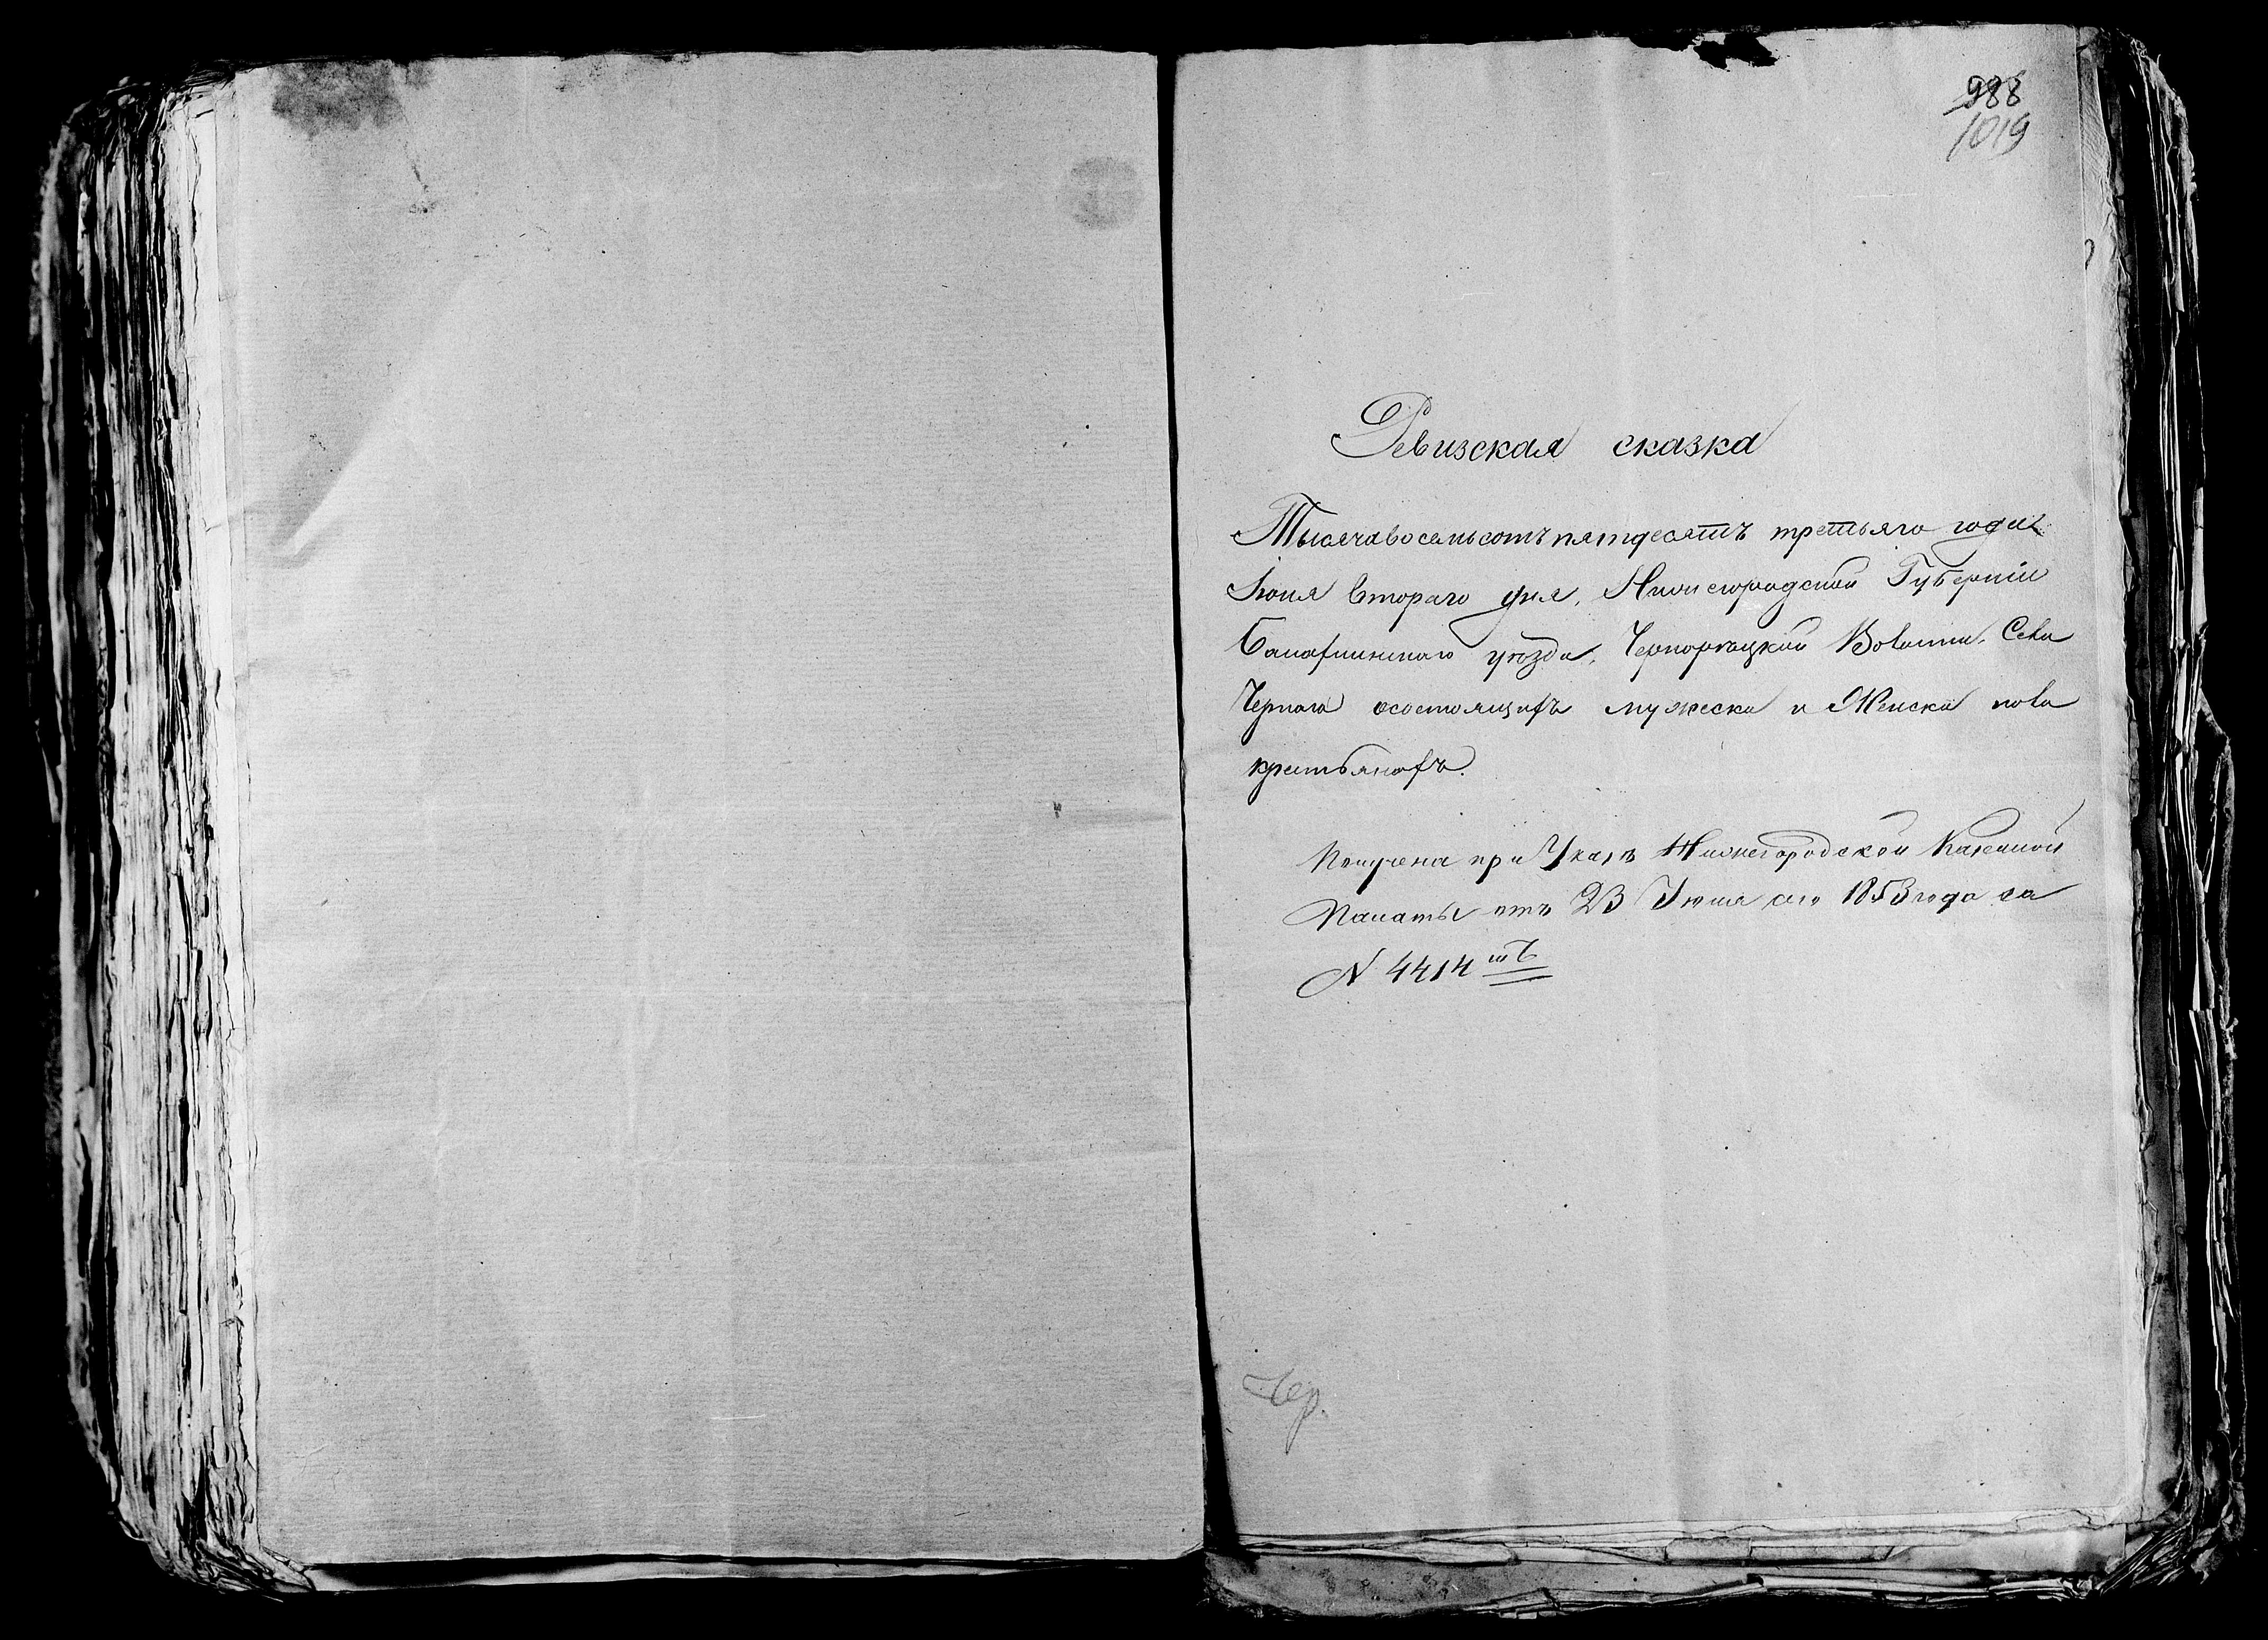 988
1019
Ревизская сказка
Тысяча восемьсотъ пятдесятъ третьяго года
Iюня втораго дня, Нижегородской Губернiи
Балахнинскаго уѣзда, Чернорѣцкой Волости. Села
Чернаго осостоящихъ мужеска и Женска пола
крестьянахъ.
Получена при Указѣ Нижегородской Казенной
Палаты отъ 23 Iюня сего 1853 года за
N 4414
Чер.